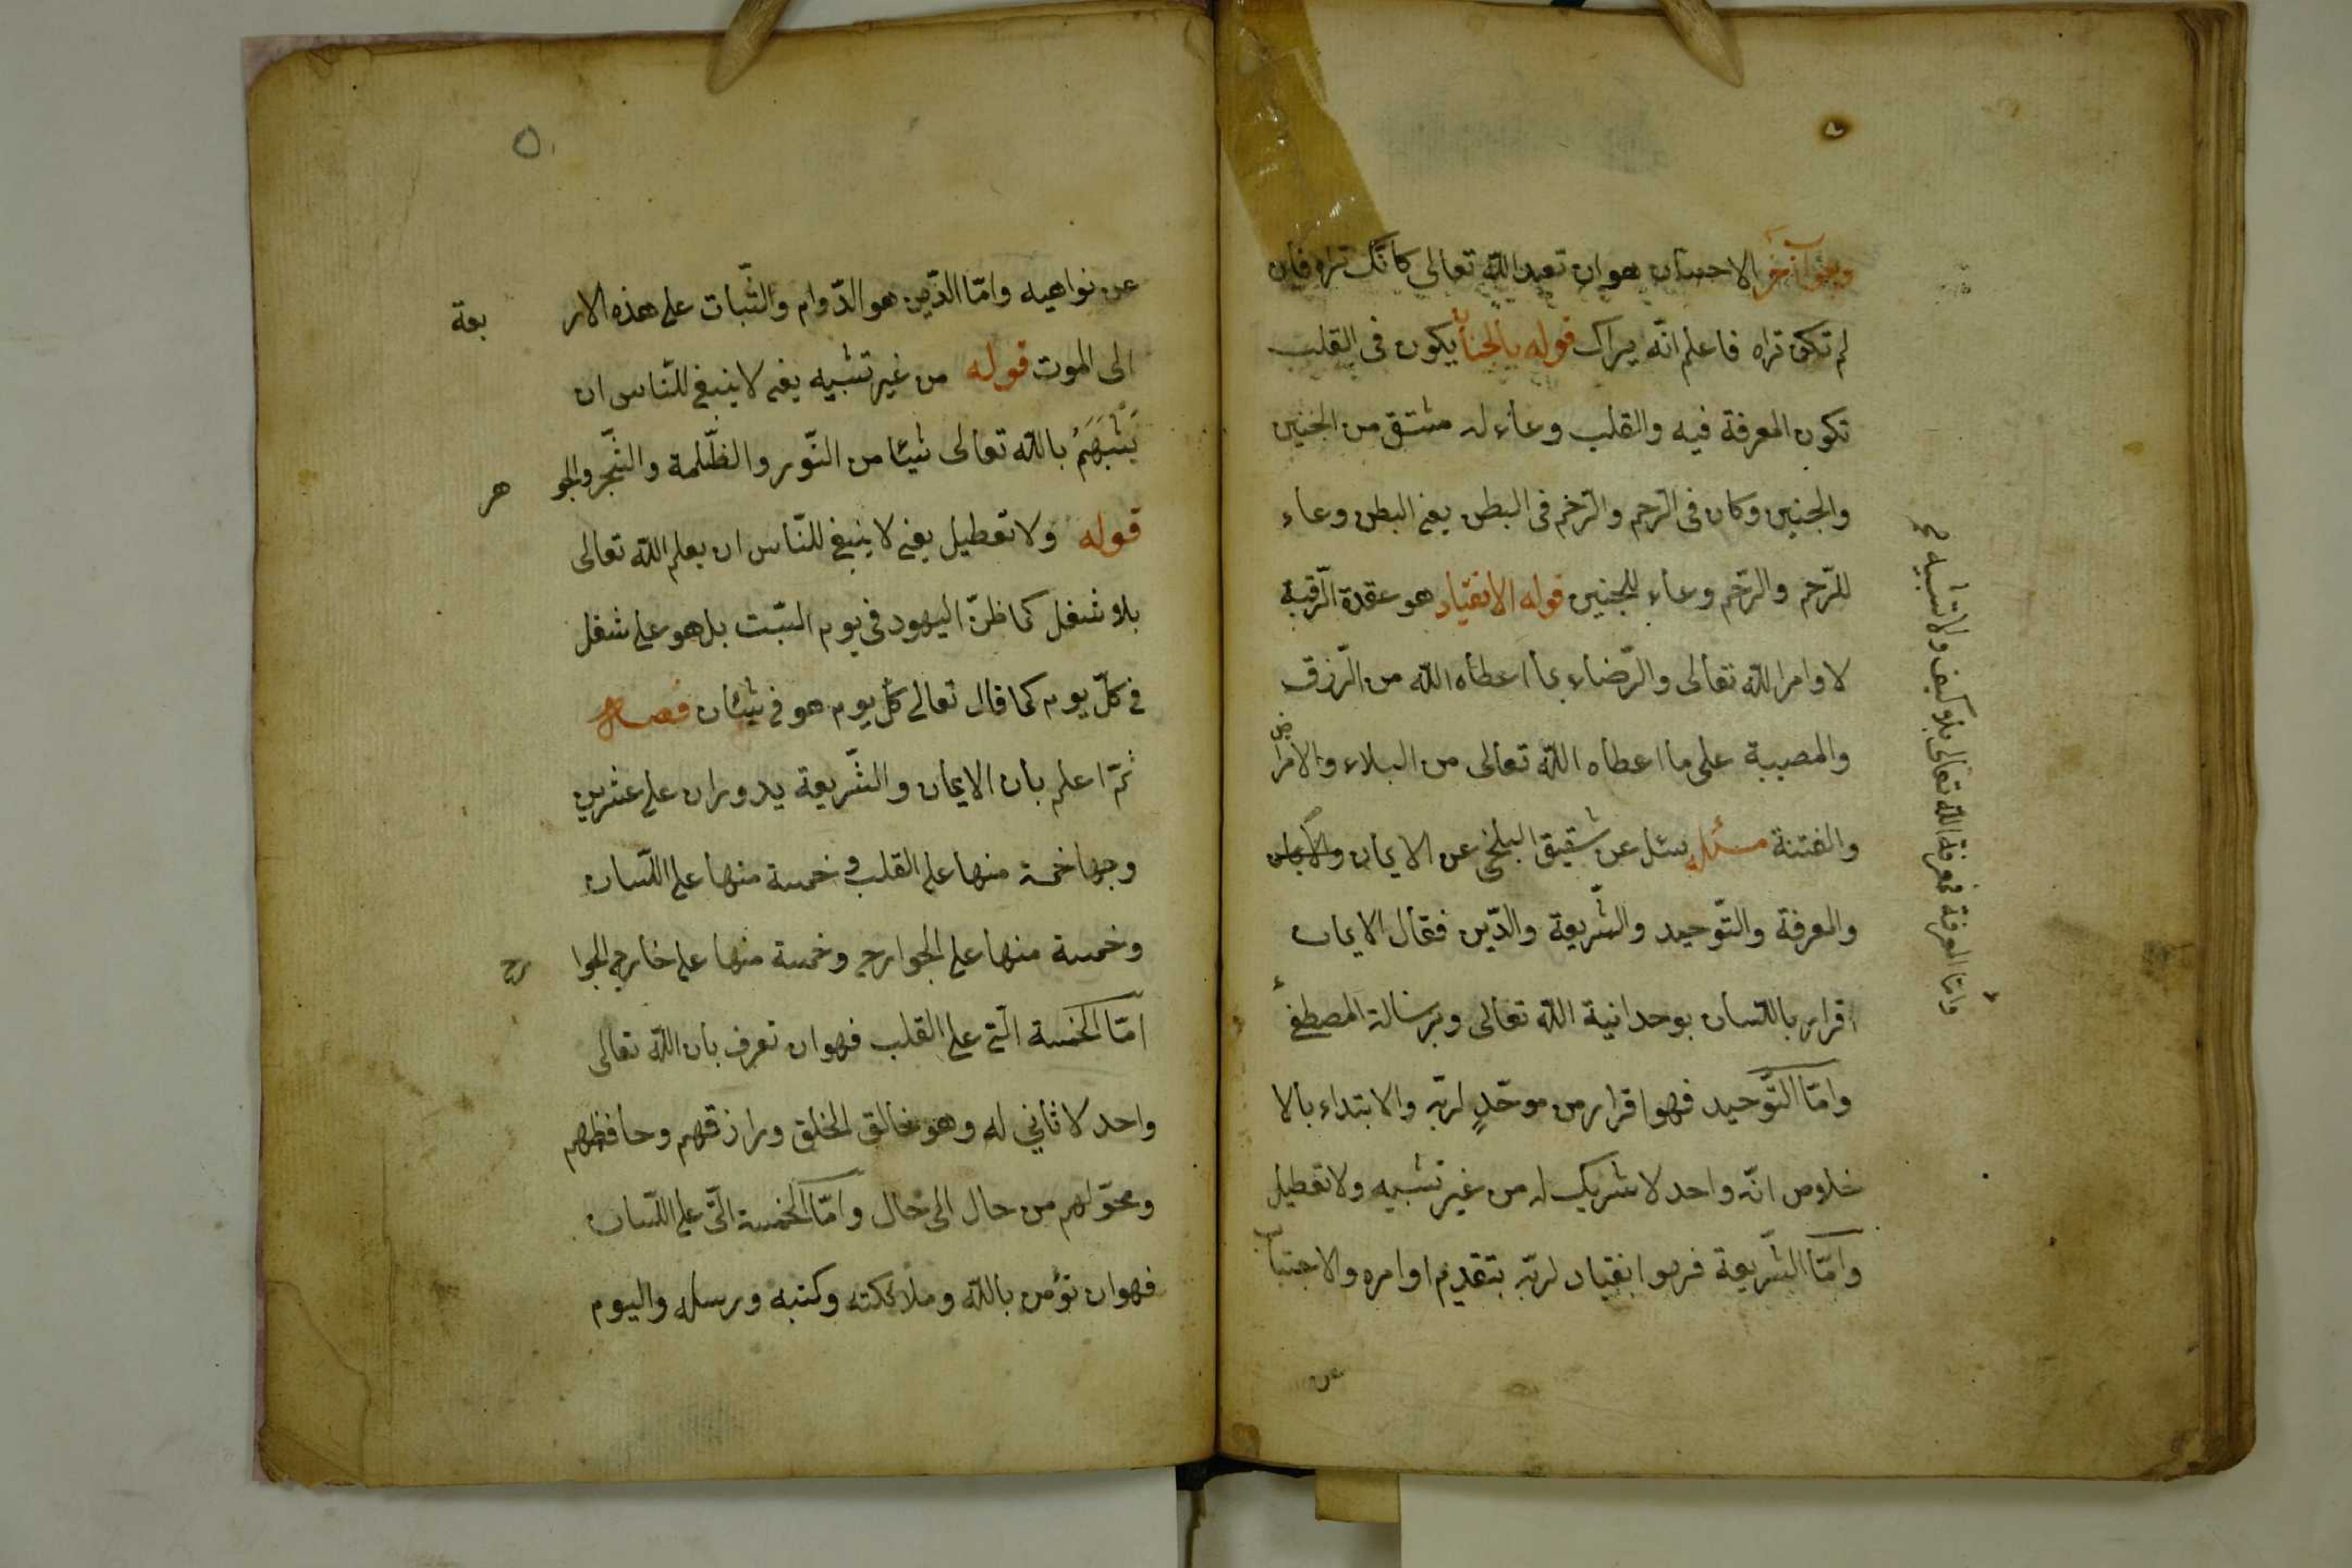 وبقول آخر الاحسان هو ان تعبد الله تعالى كانّك تراه فان
لم تكن تراه فاعلم انّه يراك قوله بالجنان يكون فى القلب
تكون المعرفة فيه والقلب وعاء له مشتق من الجنين
والجنين وكان فى الرحم والرّحم فى البطن يعنى البطن وعاء
للرّحم والرّحم وعاء للجنين قوله الانقياد هو عقدة الرّقبة
لاوامر الله تعالى والرّضاء بما اعطاه الله من الرّزق
والمصيبة على ما اعطاه الله تعالى من البلاء والامراض
والفتنة مسئلة سئل عن شقيق البلخى عن الايمان
والمعرفة والتّوحيد والشّريعة والدّين فقال الايمان
اقرار باللّسان بوحدانية الله تعالى وبرسالة المصطفى
وامّا التّوحيد فهو اقرار من موحّدٍ لربّه والابتداء بالا
خلاص انّه واحد لا شريك له من غير تشبيه ولا تعطيل
وامّا الشّريعة فهو انقياد لربّه بتقديم اوامره والاجتناب
عن
وامّا المعرفة فمعرفة الله تعالى بلا كيف ولا تشبيه صح
٥
عن نواهيه وامّا الدّين هو الدّوام والثّبات على هذه الار بعة
الى الموت قوله من غير تشبيه يعنى لا ينبغى للنّاس ان
يَشْبَهَمُ بالله تعالى شيئا من النّور والظّلمة والشّجر والجو هر
قوله ولا تعطيل يعنى لا ينبغى للنّاس ان يعلم الله تعالى
بلا شغل كما ظنّ اليهود فى يوم السّبت بل هو على شغل
فى كلّ يوم كما قال تعالى كلّ يوم هو فى شئان فصل
ثمّ اعلم بان الايمان والشّريعة يدوران على عشرين
وجها خمسة منها على القلب وخمسة منها على اللّسان
وخمسة منها على الجوارح وخمسة منها على خارج الجوا رح
امّا الخمسة الّتى على القلب فهو ان تعرف بان الله تعالى
واحد لا ثاني له وهو خالق الخلق ورازقهم وحافظهم
ومحوّلهم من حال الى حال وامّا الخمسة الّتى على اللّسان
فهو ان تؤمن بالله وملائكته وكتبه ورسله واليوم